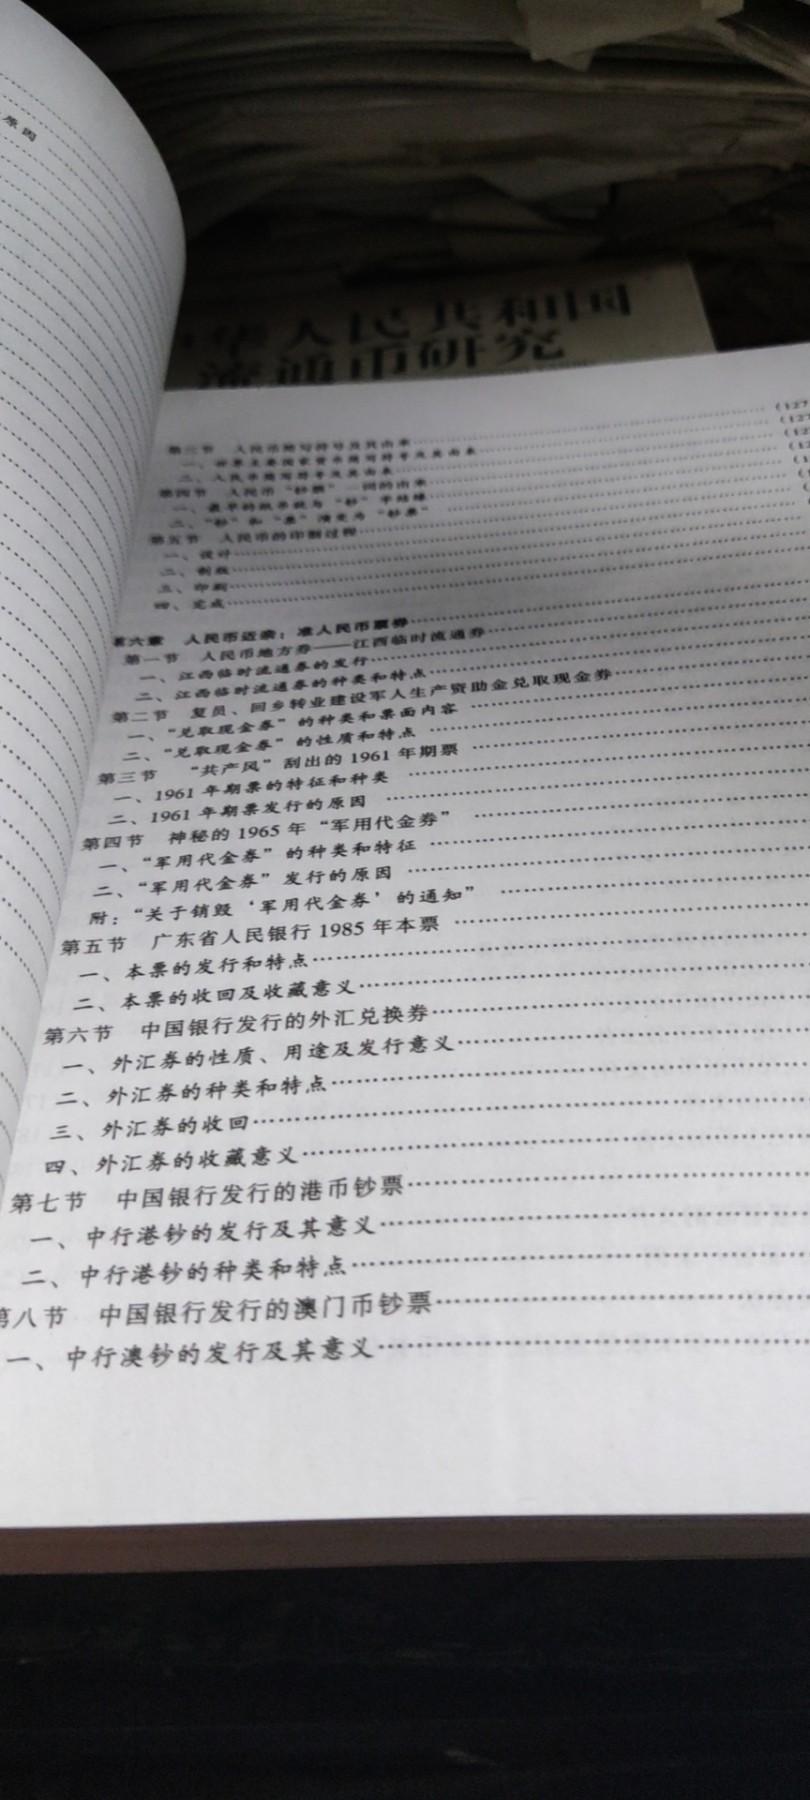 原因
华人民共和国
流通币研究
第三节 人民币简写符号及其由来
(127
一、世界主要国家货币简写符号及其由来
(127
二、人民币简写符号及其由来
第四节 人民币“钞票”一词的由来
一、最早的纸币就与“钞”字结缘
二、“钞”和“票”演变为“钞票”
第五节 人民币的印制过程
一、设计
二、制版
三、印刷
四、完成
六章 人民币近亲:准人民币票券
第一节 人民币地方券——江西临时流通券
一、江西临时流通券的发行
二、江西临时流通券的种类和特点
第二节 复员、回乡转业建设军人生产资助金兑取现金券
一、“兑取现金券”的种类和票面内容
二、“兑取现金券”的性质和特点
第三节 “共产风”刮出的1961年期票
一、1961年期票的特征和种类
二、1961年期票发行的原因
第四节 神秘的1965年“军用代金券”
一、“军用代金券”的种类和特征
二、“军用代金券”发行的原因
附:“关于销毁‘军用代金券’的通知”
第五节 广东省人民银行1985年本票
一、本票的发行和特点
二、本票的收回及收藏意义
第六节 中国银行发行的外汇兑换券
一、外汇券的性质、用途及发行意义
二、外汇券的种类和特点
三、外汇券的收回
四、外汇券的收藏意义
第七节 中国银行发行的港币钞票
一、中行港钞的发行及其意义
二、中行港钞的种类和特点
第八节 中国银行发行的澳门币钞票
一、中行澳钞的发行及其意义